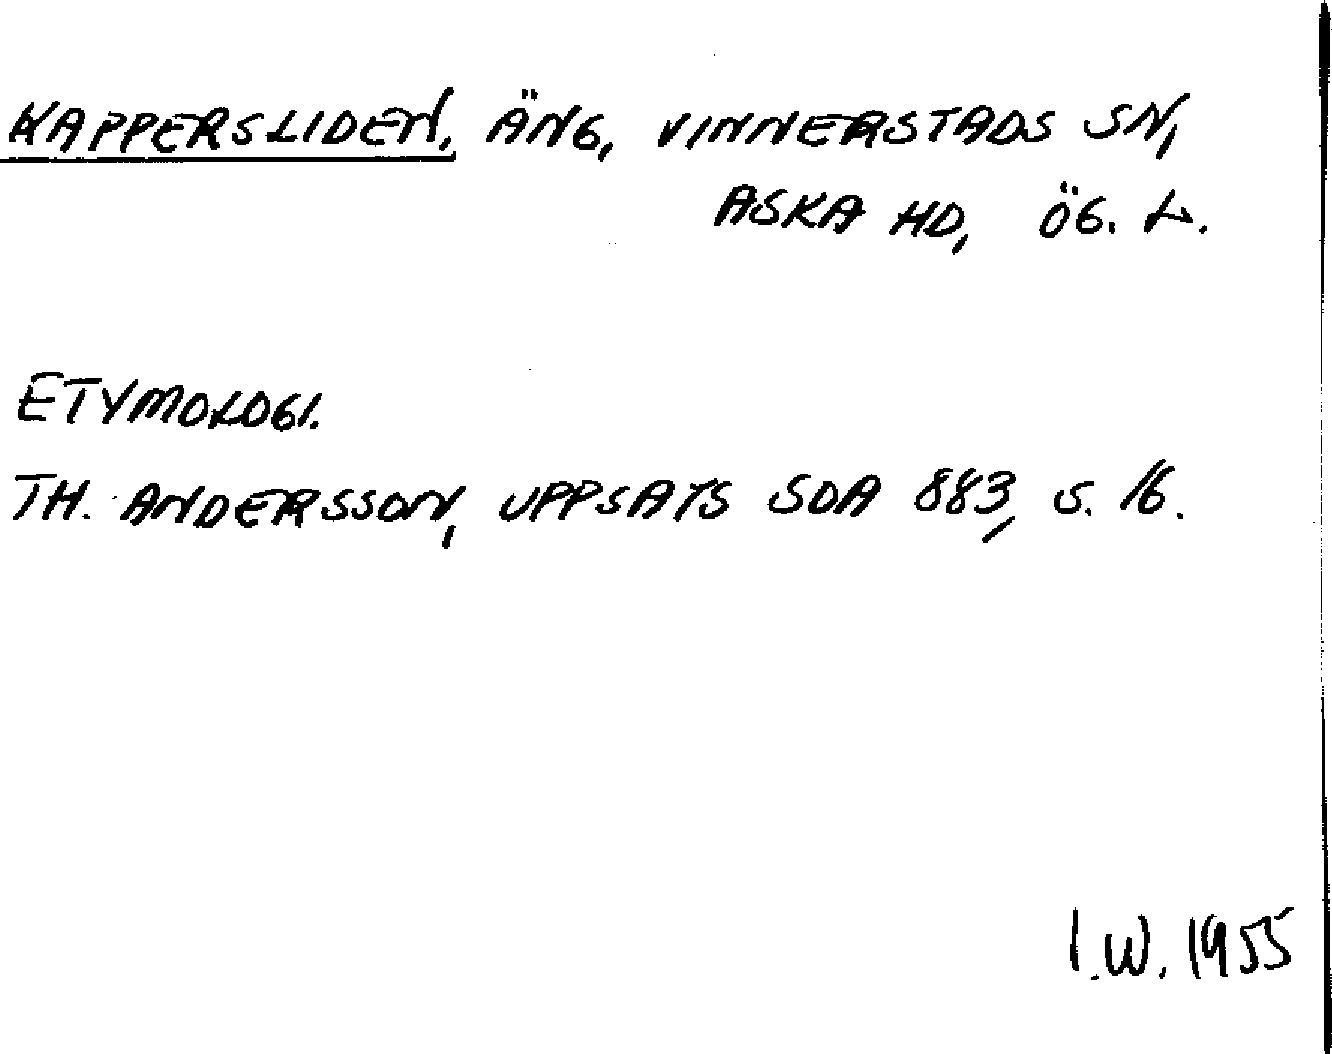 KAPPERSLIDEN, ÄNG, VINNERSTADS SN,
ASKA HD, ÖG. L.
ETYMOLOGI.
TH. ANDERSSON, UPPSATS SOA 883, S. 16.
I.W. 1955